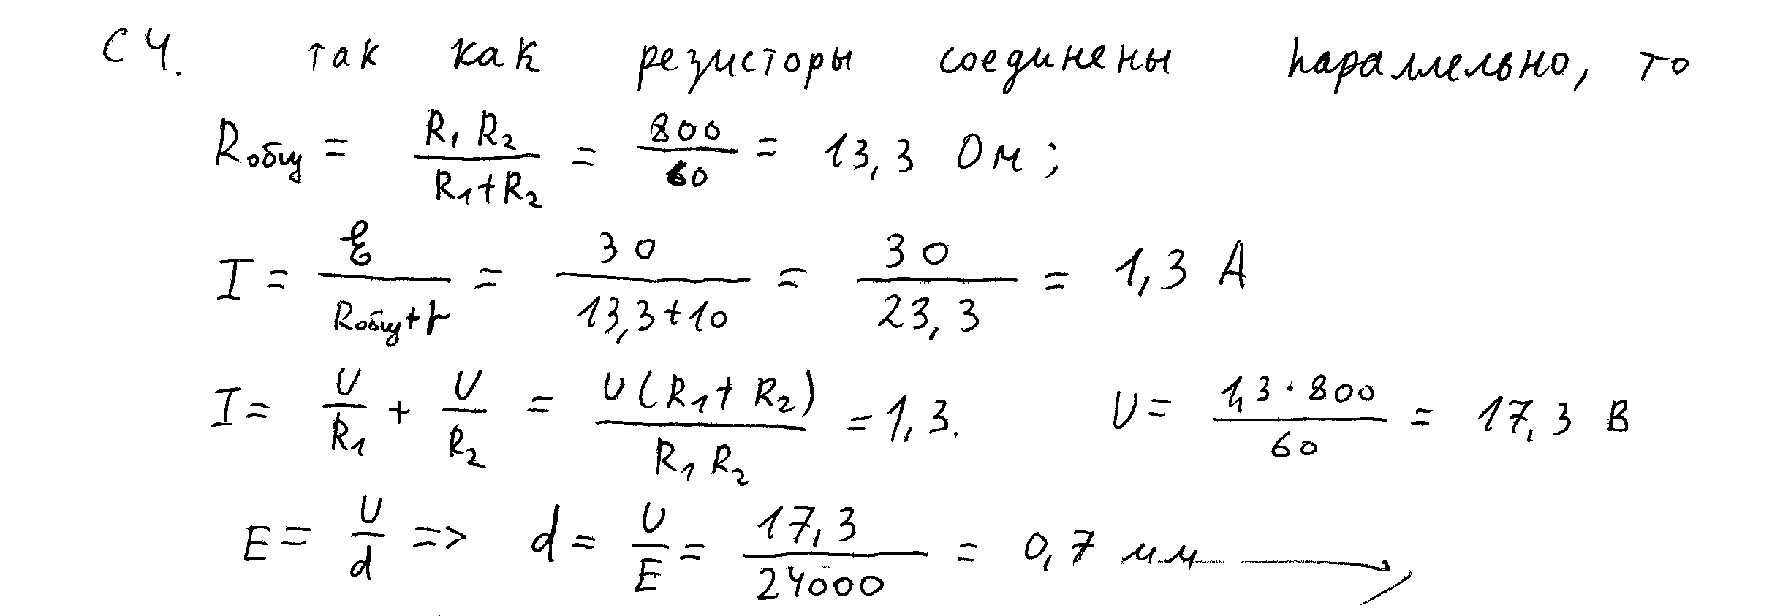 С4. так как резисторы соединены параллельно, то
Rобщ = R₁ R₂ / R₁+R₂ = 800 / 60 = 13,3 Ом;
I = ℰ / Rобщ+r = 30 / 13,3+10 = 30 / 23,3 = 1,3 А
I = U/R₁ + U/R₂ = U(R₁+R₂) / R₁ R₂ = 1,3. U = 1,3·800 / 60 = 17,3 В
E = U/d => d = U/E = 17,3 / 24000 = 0,7 мм